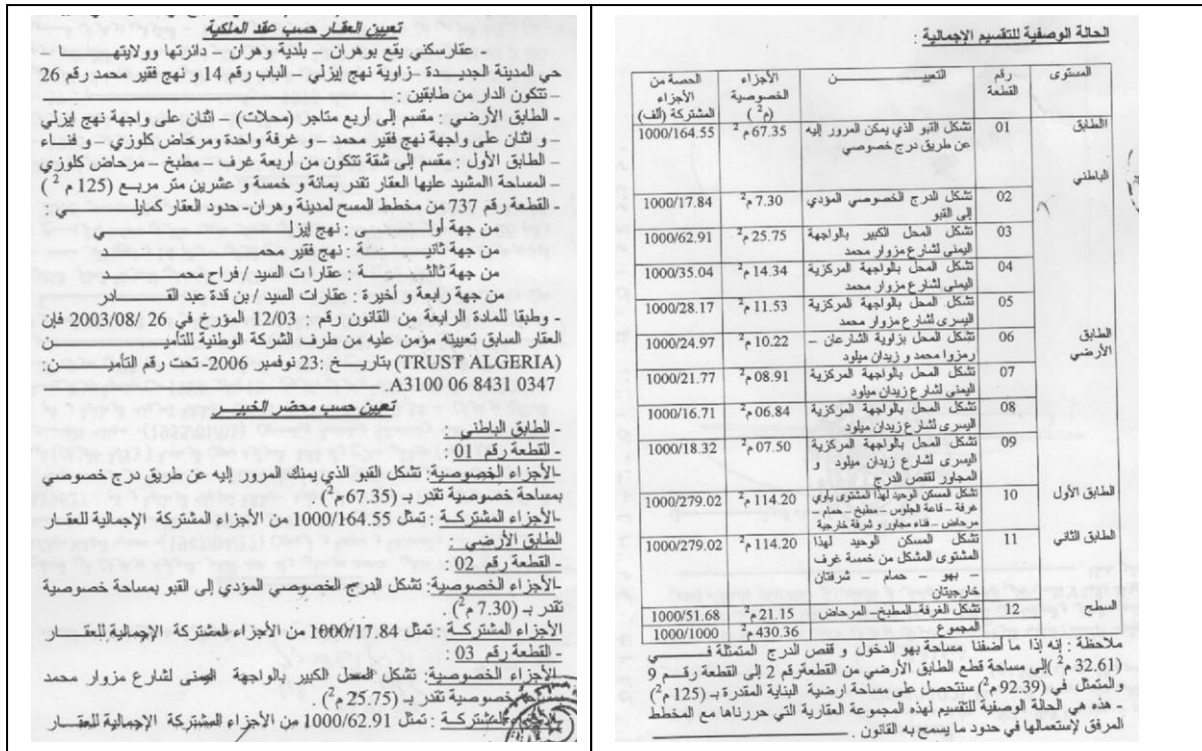 تعيين العقار حسب عقد الملكية
عقار سكني يقع بوهران – بلدية وهران – دائرتها وولايتهــــا –
حي المدينة الجديــدة – زاوية نهج إيزلي – الباب رقم 14 و نهج فقير محمد رقم 26
– تتكون الدار من طابقين :
- الطابق الأرضي : مقسم إلى أربع متاجر (محلات) – اثنان على واجهة نهج إيزلي
– و اثنان على واجهة نهج فقير محمد – و غرفة واحدة ومرحاض كلوزي – و فنــاء
– الطابق الأول : مقسم إلى شقة تتكون من أربعة غرف – مطبخ – مرحاض كلوزي
– المساحة المشيد عليها العقار تقدر بمائة و خمسة و عشرين متر مربع (125 م 2 )
- القطعة رقم 737 من مخطط المسح لمدينة وهران- حدود العقار كمايلـــــي :
من جهة أولـــــى : نهج إيزلـــــي
من جهة ثانيـــــة : نهج فقير محمـــــد
من جهة ثالثـــــة : عقارات السيد / فراح محمـــــد
من جهة رابعة و أخيرة : عقارات السيد / بن قدة عبد القـــــادر
- وطبقا للمادة الرابعة من القانون رقم : 12/03 المؤرخ في 26 /2003/08 فإن
العقار السابق تعيينه مؤمن عليه من طرف الشركة الوطنية للتأميـــــن
(TRUST ALGERIA) بتاريـــخ :23 نوفمبر 2006- تحت رقم التأميـــــن:
A3100 06 8431 0347.
تعيين حسب محضر الخبيـــر
- الطابق الباطني :
- القطعة رقم 01 :
-الأجزاء الخصوصية: تشكل القبو الذي يمنك المرور إليه عن طريق درج خصوصي
بمساحة خصوصية تقدر بـ (67.35 م2)
-الأجزاء المشتركــة : تمثل 1000/164.55 من الأجزاء المشتركة الإجمالية للعقار
الطابق الأرضي :
- القطعة رقم 02 :
-الأجزاء الخصوصية: تشكل الدرج الخصوصي المؤدي إلى القبو بمساحة خصوصية
تقدر بـ (7.30 م2) .
الأجزاء المشتركــة : تمثل 1000/17.84 من الأجزاء المشتركة الإجمالية للعقــــار
- القطعة رقم 03 :
-الأجزاء الخصوصية: تشكل المحل الكبير بالواجهة اليمنى لشارع مزوار محمد
خصوصية تقدر بـ (25.75 م2) .
المشتركــة : تمثل 1000/62.91 من الأجزاء المشتركة الإجمالية للعقــــار
الحالة الوصفية للتقسيم الإجمالية :
المستوى رقم القطعة التعييـــــن الأجزاء الخصوصية (م2) الحصة من الأجزاء المشتركة (ألف)
الطابق الباطني 01 تشكل القبو الذي يمكن المرور إليه 67.35 م2 1000/164.55
عن طريق درج خصوصي
02 تشكل الدرج الخصوصي المؤدي 7.30 م2 1000/17.84
إلى القبو
03 تشكل المحل الكبير بالواجهة 25.75 م2 1000/62.91
اليمنى لشارع مزوار محمد
04 تشكل المحل بالواجهة المركزية 14.34 م2 1000/35.04
اليمنى لشارع مزوار محمد
05 تشكل المحل بالواجهة المركزية 11.53 م2 1000/28.17
اليسرى لشارع مزوار محمد
الطابق الأرضي 06 تشكل المحل بزاوية الشارعان – 10.22 م2 1000/24.97
رمزوا محمد و زيدان ميلود
07 تشكل المحل بالواجهة المركزية 08.91 م2 1000/21.77
اليمنى لشارع زيدان ميلود
08 تشكل المحل بالواجهة المركزية 06.84 م2 1000/16.71
اليسرى لشارع زيدان ميلود
09 تشكل المحل بالواجهة المركزية 07.50 م2 1000/18.32
اليسرى لشارع زيدان ميلود و
المجاور لقفص الدرج
الطابق الأول 10 تشكل المسكن الوحيد لهذا المشتوى يأوي 114.20 م2 1000/279.02
غرفة – قاعة الجلوس – مطبخ – حمام –
مرحاض – فناء مجاور و شرفة خارجية
الطابق الثاني 11 تشكل المسكن الوحيد لهذا 114.20 م2 1000/279.02
المشتوى المشكل من خمسة غرف
– بهو – حمام – شرفتان
خارجيتان
السطح 12 تشكل الغرفة-المطبخ- المرحاض 21.15 م2 1000/51.68
المجموع 430.36 م2 1000/1000
ملاحظة : إنه إذا ما أضفنا مساحة بهو الدخول و قفص الدرج المتمثلة فـــــي
(32.61 م2 )إلى مساحة قطع الطابق الأرضي من القطعةرقم 2 إلى القطعة رقـــم 9
والمتمثل في (92.39 م2) سنتحصل على مساحة ارضية البناية المقدرة بـ (125 م2)
- هذه هي الحالة الوصفية للتقسيم لهذه المجموعة العقارية التي حررناها مع المخطط
المرفق لإستعمالها في حدود ما يسمح به القانون .